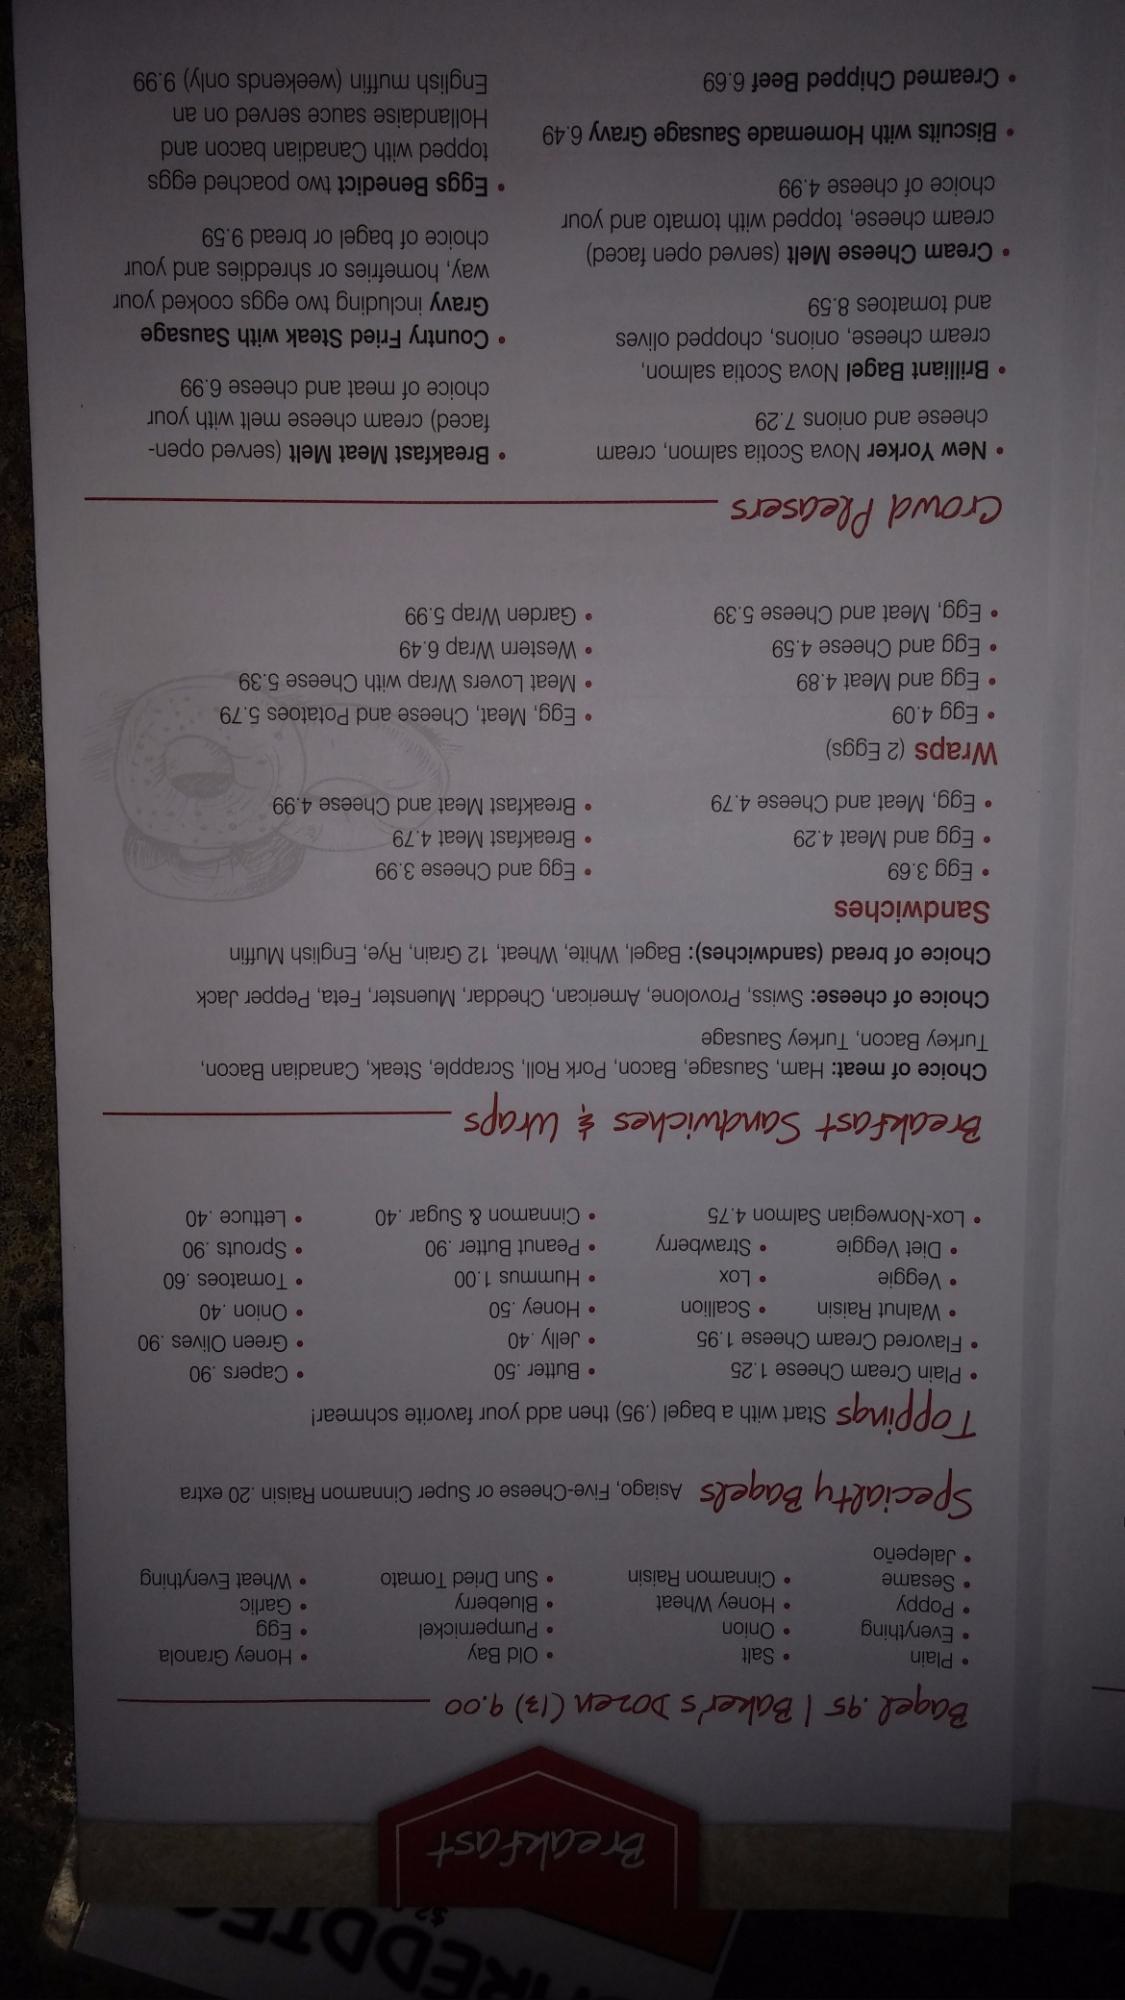 Breakfast
Bagel .95 | Baker's Dozen (13) 9.00
• Plain
• Everything
• Poppy
• Sesame
• Jalepeño
• Salt
• Onion
• Honey Wheat
• Cinnamon Raisin
• Old Bay
• Pumpernickel
• Blueberry
• Sun Dried Tomato
• Honey Granola
• Egg
• Garlic
• Wheat Everything
Specialty Bagels Asiago, Five-Cheese or Super Cinnamon Raisin .20 extra
Toppings Start with a bagel (.95) then add your favorite schmear!
• Plain Cream Cheese 1.25
• Flavored Cream Cheese 1.95
• Walnut Raisin • Scallion
• Veggie • Lox
• Diet Veggie • Strawberry
• Lox-Norwegian Salmon 4.75
• Butter .50
• Jelly .40
• Honey .50
• Hummus 1.00
• Peanut Butter .90
• Cinnamon & Sugar .40
• Capers .90
• Green Olives .90
• Onion .40
• Tomatoes .60
• Sprouts .90
• Lettuce .40
Breakfast Sandwiches & Wraps
Choice of meat: Ham, Sausage, Bacon, Pork Roll, Scrapple, Steak, Canadian Bacon,
Turkey Bacon, Turkey Sausage
Choice of cheese: Swiss, Provolone, American, Cheddar, Muenster, Feta, Pepper Jack
Choice of bread (sandwiches): Bagel, White, Wheat, 12 Grain, Rye, English Muffin
Sandwiches
• Egg 3.69
• Egg and Meat 4.29
• Egg, Meat and Cheese 4.79
• Egg and Cheese 3.99
• Breakfast Meat 4.79
• Breakfast Meat and Cheese 4.99
Wraps (2 Eggs)
• Egg 4.09
• Egg and Meat 4.89
• Egg and Cheese 4.59
• Egg, Meat and Cheese 5.39
• Egg, Meat, Cheese and Potatoes 5.79
• Meat Lovers Wrap with Cheese 5.39
• Western Wrap 6.49
• Garden Wrap 5.99
Crowd Pleasers
• New Yorker Nova Scotia salmon, cream
cheese and onions 7.29
• Brilliant Bagel Nova Scotia salmon,
cream cheese, onions, chopped olives
and tomatoes 8.59
• Cream Cheese Melt (served open faced)
cream cheese, topped with tomato and your
choice of cheese 4.99
• Biscuits with Homemade Sausage Gravy 6.49
• Creamed Chipped Beef 6.69
• Breakfast Meat Melt (served open-
faced) cream cheese melt with your
choice of meat and cheese 6.99
• Country Fried Steak with Sausage
Gravy including two eggs cooked your
way, homefries or shreddies and your
choice of bagel or bread 9.59
• Eggs Benedict two poached eggs
topped with Canadian bacon and
Hollandaise sauce served on an
English muffin (weekends only) 9.99